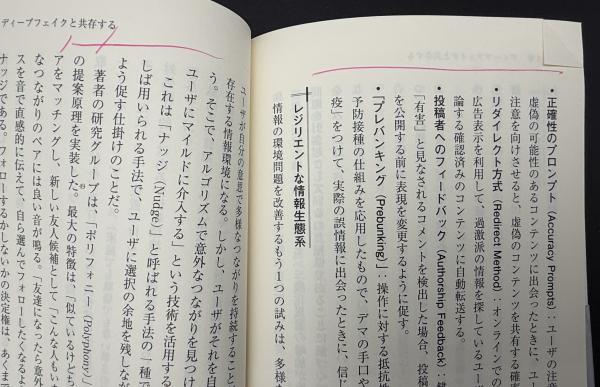 ・正確性のプロンプト（Accuracy Prompts）：ユーザの注意
虚偽の可能性のあるコンテンツに出会ったときに、ユ
注意を向けさせると、虚偽のコンテンツを共有する確
・リダイレクト方式（Redirect Method）：オンラインでの
広告表示を利用して、過激派の情報を探しているユー
論する確認済みのコンテンツに自動転送する。
・投稿者へのフィードバック（Authorship Feedback）：錯
「有害」と見なされるコメントを検出した場合、投稿
を公開する前に表現を変更するように促す。
・「プレバンキング（Prebunking）」：操作に対する抵抗性
予防接種の仕組みを応用したもので、デマの手口や
疫」をつけて、実際の誤情報に出会ったときに、信じ
レジリエントな情報生態系
情報の環境問題を改善するもう1つの試みは、多様
ディープフェイクと共存する
ユーザが自分の意思で多様なつながりを持続すること
存在する情報環境になる。しかし、ユーザがそれを自
う。そこで、アルゴリズムで意外なつながりを見つけ
ユーザにマイルドに介入する」という技術を活用する
これは「ナッジ（Nudge）」と呼ばれる手法の一種で
しば用いられる手法で、ユーザに選択の余地を残しなが
よう促す仕掛けのことだ。
著者の研究グループは、「ポリフォニー（Polyphony）」
の提案原理を実装した。最大の特徴は、「似ているけども
アをマッチングし、新しい友人候補として「こんな人もい
なつながりのペアには良い音が鳴る。「友達になったら意外
スを音で直感的に伝えて、自ら選んでフォローしたくなるよ
ナッジである。フォローするかしないかの決定権は、あくま